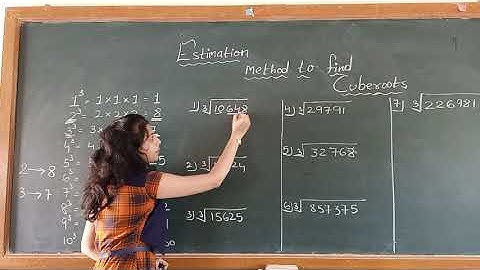 Estimation
Method to find
Cuberoots
1³ = 1 × 1 × 1 = 1
2³ = 2 × 2 × 2 = 8
3³ =
4³ =
5³ =
6³ =
7³ =
8³ =
9³ =
10³ =
2 → 8
3 → 7
1) ∛10648
2) ∛
3) ∛15625
4) ∛29791
5) ∛32768
6) ∛857375
7) ∛226981